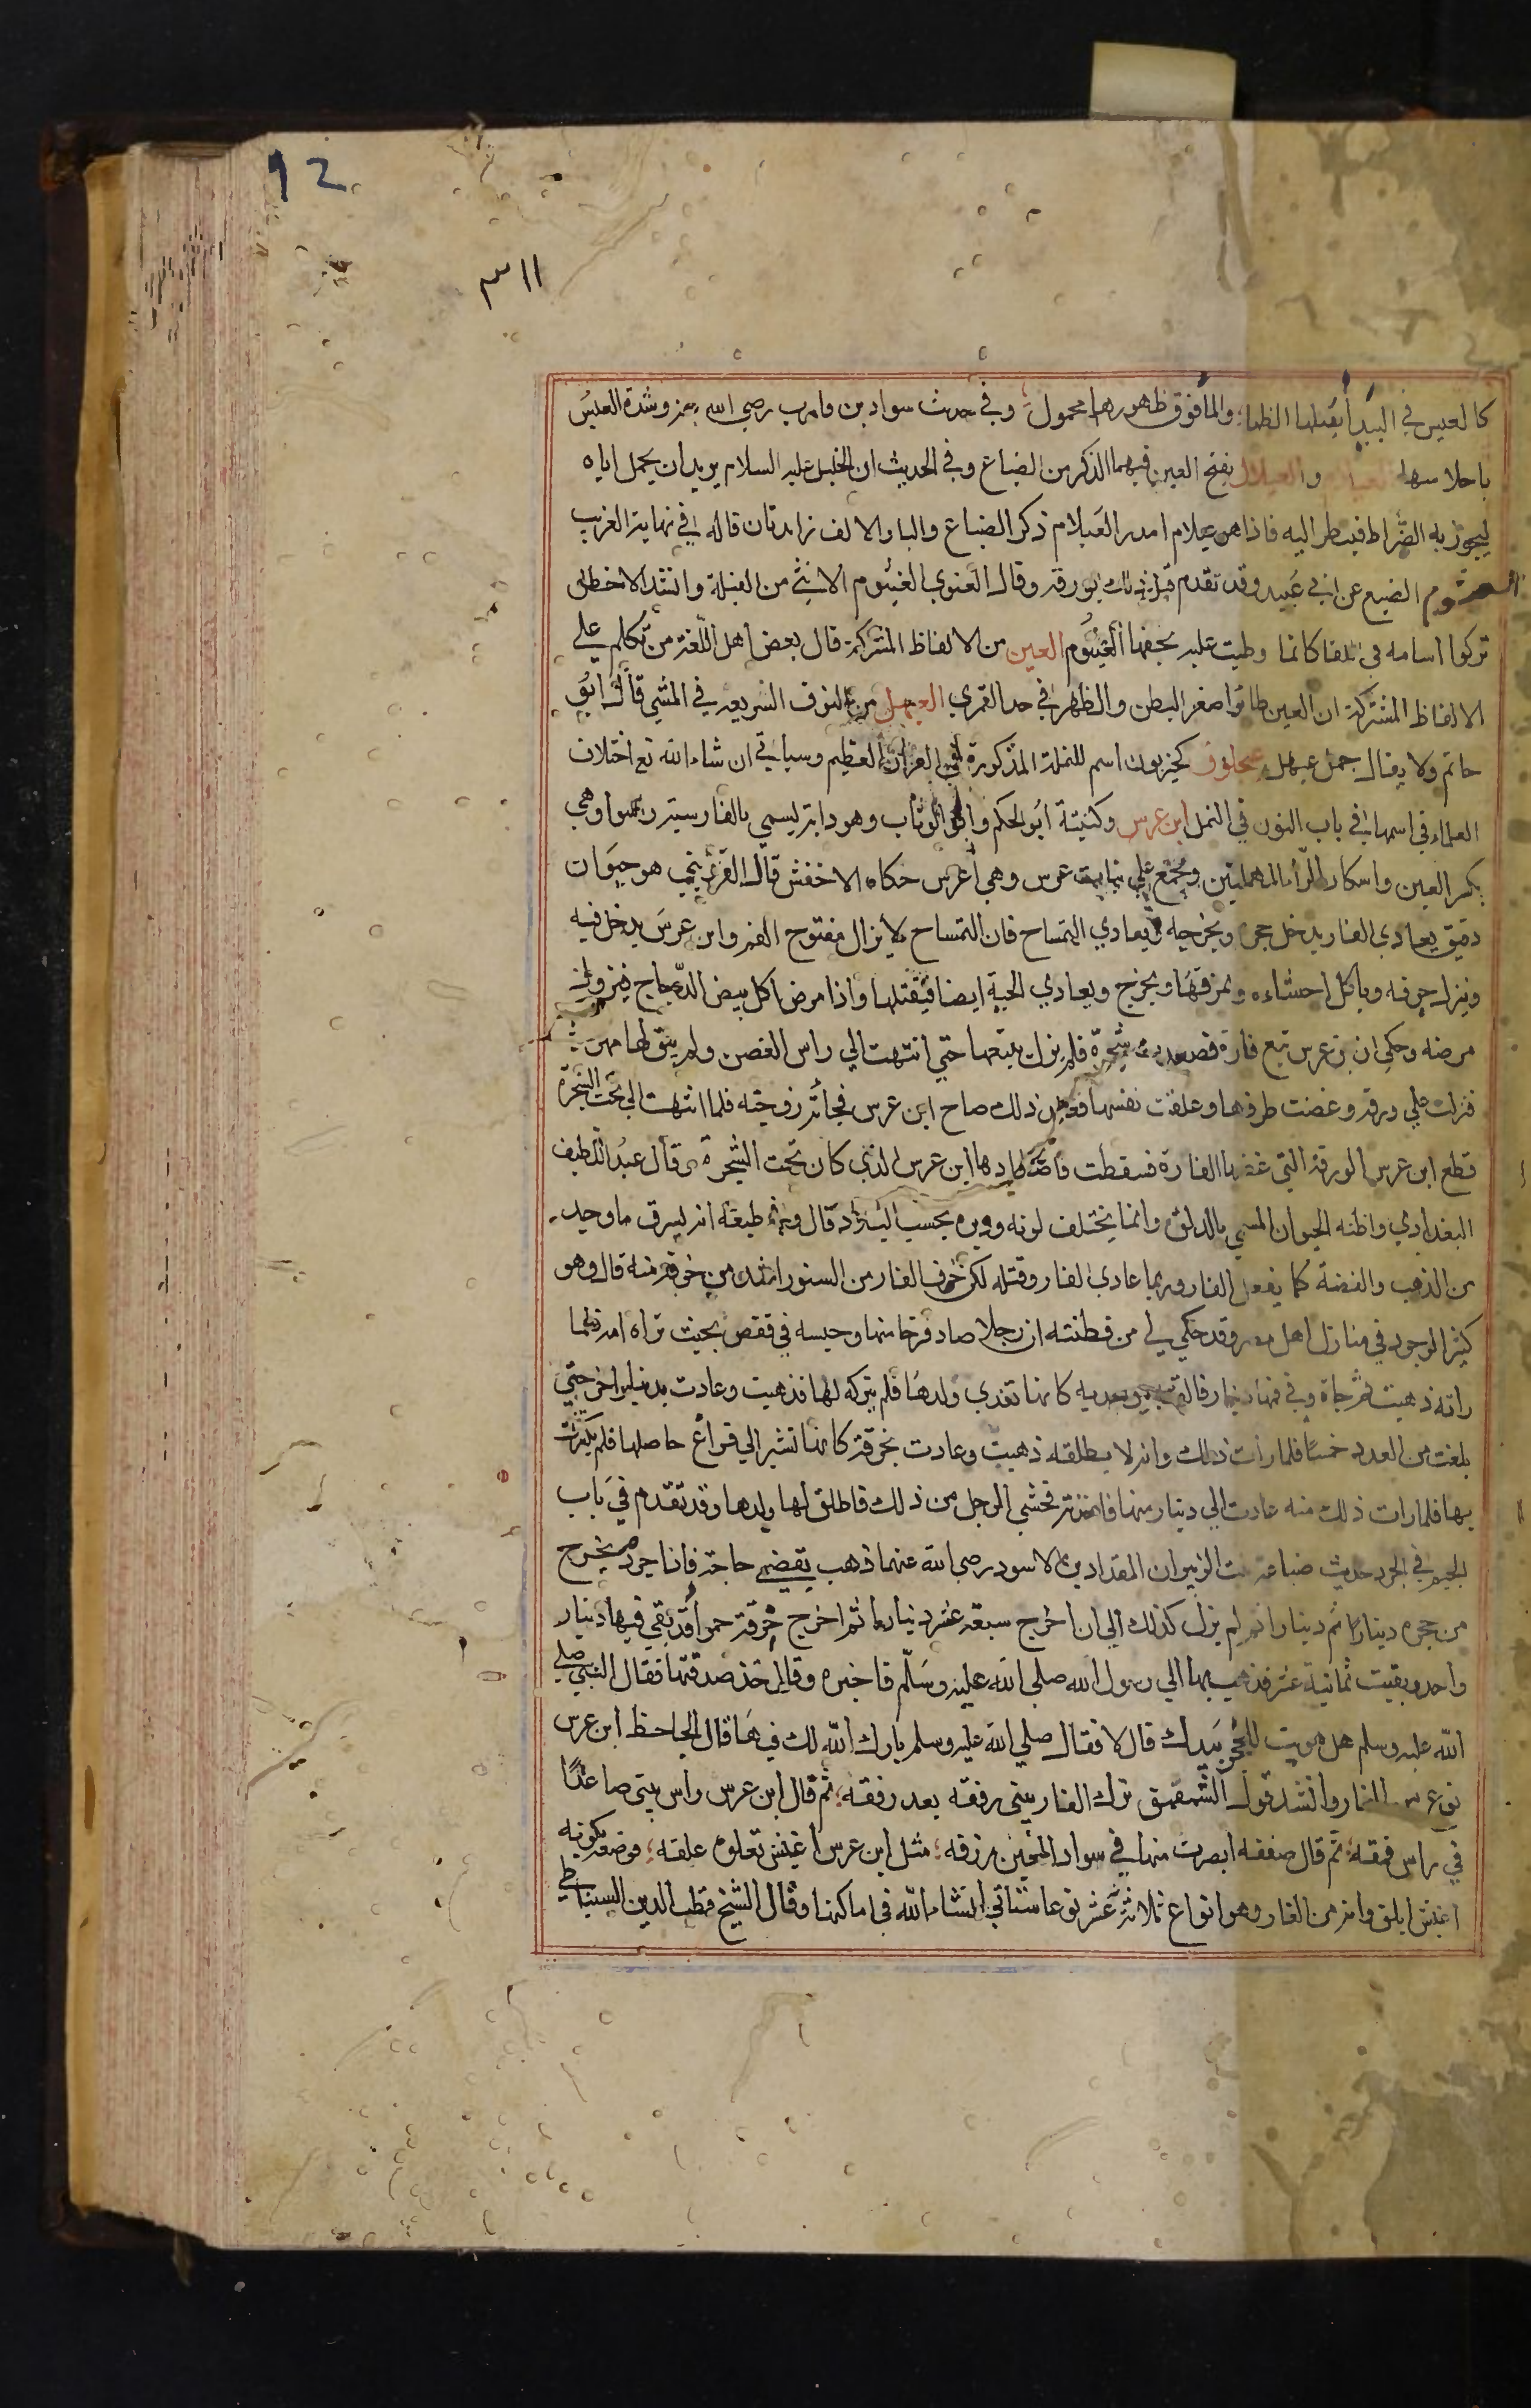 12
٣١١
كالعيس في البيدأ يقتلها الظما؛ والمأ فوق ظهورها محمول؛ وفي حديث سواد بن قارب رضي الله عنه وشدة العيس
باحلاسها والعيلان بفتح العين فيهما الذكر من الضباع وفي الحديث ان الخليل عليه السلام يريد ان يحمل اباه
ليجوز به الصراط فينظر اليه فاذا هو عيلام امدر العيلام ذكر الضباع واليا والالف زايدتان قاله في نهاية الغريب
العيثوم الضبع عن ابي عبيد وقد تقدم قبل ذلك بورقة وقال الغنوي الغيثوم الانثي من الفيلة وانشد الاخطل
تركوا اسامه في اللقا كانما وطيت عليه بخفها الغيثوم العين من الالفاظ المشتركة قال بعض اهل اللغة من تكلم علي
الالفاظ المشتركة ان العين طائر اصفر البطن والظهر في حد القمري العيهل من النوق السريعه في المشي قال ابو
حاتم ولا يقال جمل عيهل عيجلوف كحيزبون اسم للنملة المذكورة في القران العظيم وسياتي ان شاء الله تع اختلاف
العلماء في اسمها في باب النون في النمل ابن عرس وكنيته ابو الحكم وابو الوثاب وهو دابة يسمي بالفارسية راسوا وهي
بكسر العين واسكان الرأ المهملتين ويجمع علي بنات عرس وهي اعرس حكاه الاخفش قال القزويني هو حيوان
دقيق يعادي الفار يدخل جحره ويخرجه ويعادي التمساح فان التمساح لا يزال مفتوح الفم وابن عرس يدخل فيه
وينزل جوفه وياكل احشاءه ويمزقها ويخرج ويعادي الحية ايضا فيقتلها واذا مرض اكل بيض الدجاج فيزول
مرضه وحكي ان بن عرس تبع فارة فصعدت شجرة فلم يزل يتبعها حتي انتهت الي راس الغصن ولم يبق لها مهرب
فنزلت علي ورقة وعضت طرفها وعلقت نفسها فعند ذلك صاح ابن عرس فجائته زوجته فلما انتهت الي تحت الشجرة
قطع ابن عرس الورقة التي عضها الفارة فسقطت فاصطادها ابن عرس الذي كان تحت الشجرة وقال عبد اللطيف
البغدادي واظنه الحيوان المسمي بالدلق وانما يختلف لونه ووبره بحسب البلاد قال ومن طبعه انه يسرق ما وجد
من الذهب والفضة كما يفعل الفار وربما عادي الفار وقتله لكن خوف الفار من السنور اشد من خوفه منه قال وهو
كثير الوجود في منازل اهل مصر وقد حكي لي من فطنته ان رجلا صاد فرخا منها وحبسه في قفص بحيث تراه امه فلما
راته ذهبت ثم جاة وفي فمها دينار فالقته بين يديه كانها تفدي ولدها فلم يتركه لها فذهبت وعادت بدينار اخر حتي
بلغت من العدد خمسا فلما رات ذلك وانه لا يطلقه ذهبت وعادت بخرقة كانها تشير الي فراغ حاصلها فلم يكترث
بها فلما رات ذلك منه عادت الي دينار منها فاخذته فخشي الرجل من ذلك فاطلق لها ولدها وقد تقدم في باب
الجيم في الجرد حديث ضباعة بنت الزبير ان المقداد بن الاسود رضي الله عنهما ذهب يقضي حاجة فاذا جرد يخرج
من جحره دينارا ثم دينارا ثم لم يزل كذلك الي ان اخرج سبعة عشر دينارا ثم اخرج خرقة حمرأ قد بقي فيها دينار
واحد وبقيت ثمانية عشر فذهب بها الي رسول الله صلي الله عليه وسلم فاخبره وقال خذ صدقتها فقال النبي صلي
الله عليه وسلم هل هويت للجحر بيدك قال لا فقال صلي الله عليه وسلم بارك الله لك فيها قال الجاحظ ابن عرس
نوع من الفار وانشد قول الشمقمق نزل الفار بيتي رفقه بعد رفقه؛ ثم قال ابن عرس راس بيتي صاعدا
في راس فقه؛ ثم قال صفقه ابصرت منها في سواد العين زرقه؛ مثل ابن عرس اغبش تعلوه علقه؛ فوصفه بكونه
اغبش ابلق وانه من الفار وهو انواع ثلاثة عشر نوعا ستاتي انشاء الله في اماكنها وقال الشيخ قطب الدين السنباطي